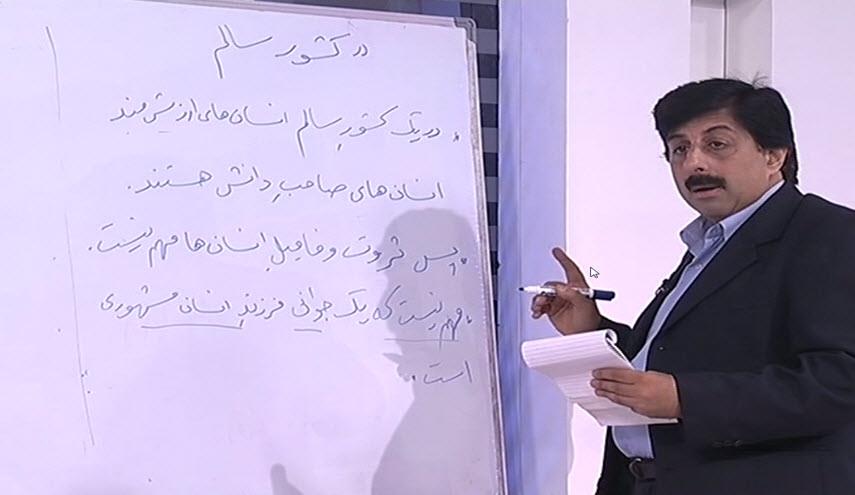 در کشور سالم
. در یک کشورِ سالم انسان‌های ارزشمند
انسان‌های صاحبِ دانش هستند.
. پس ثروت و فامیلِ انسان‌ها مهم نیست.
. مهم نیست که یک جوانی فرزندِ انسان مشهوری
است.